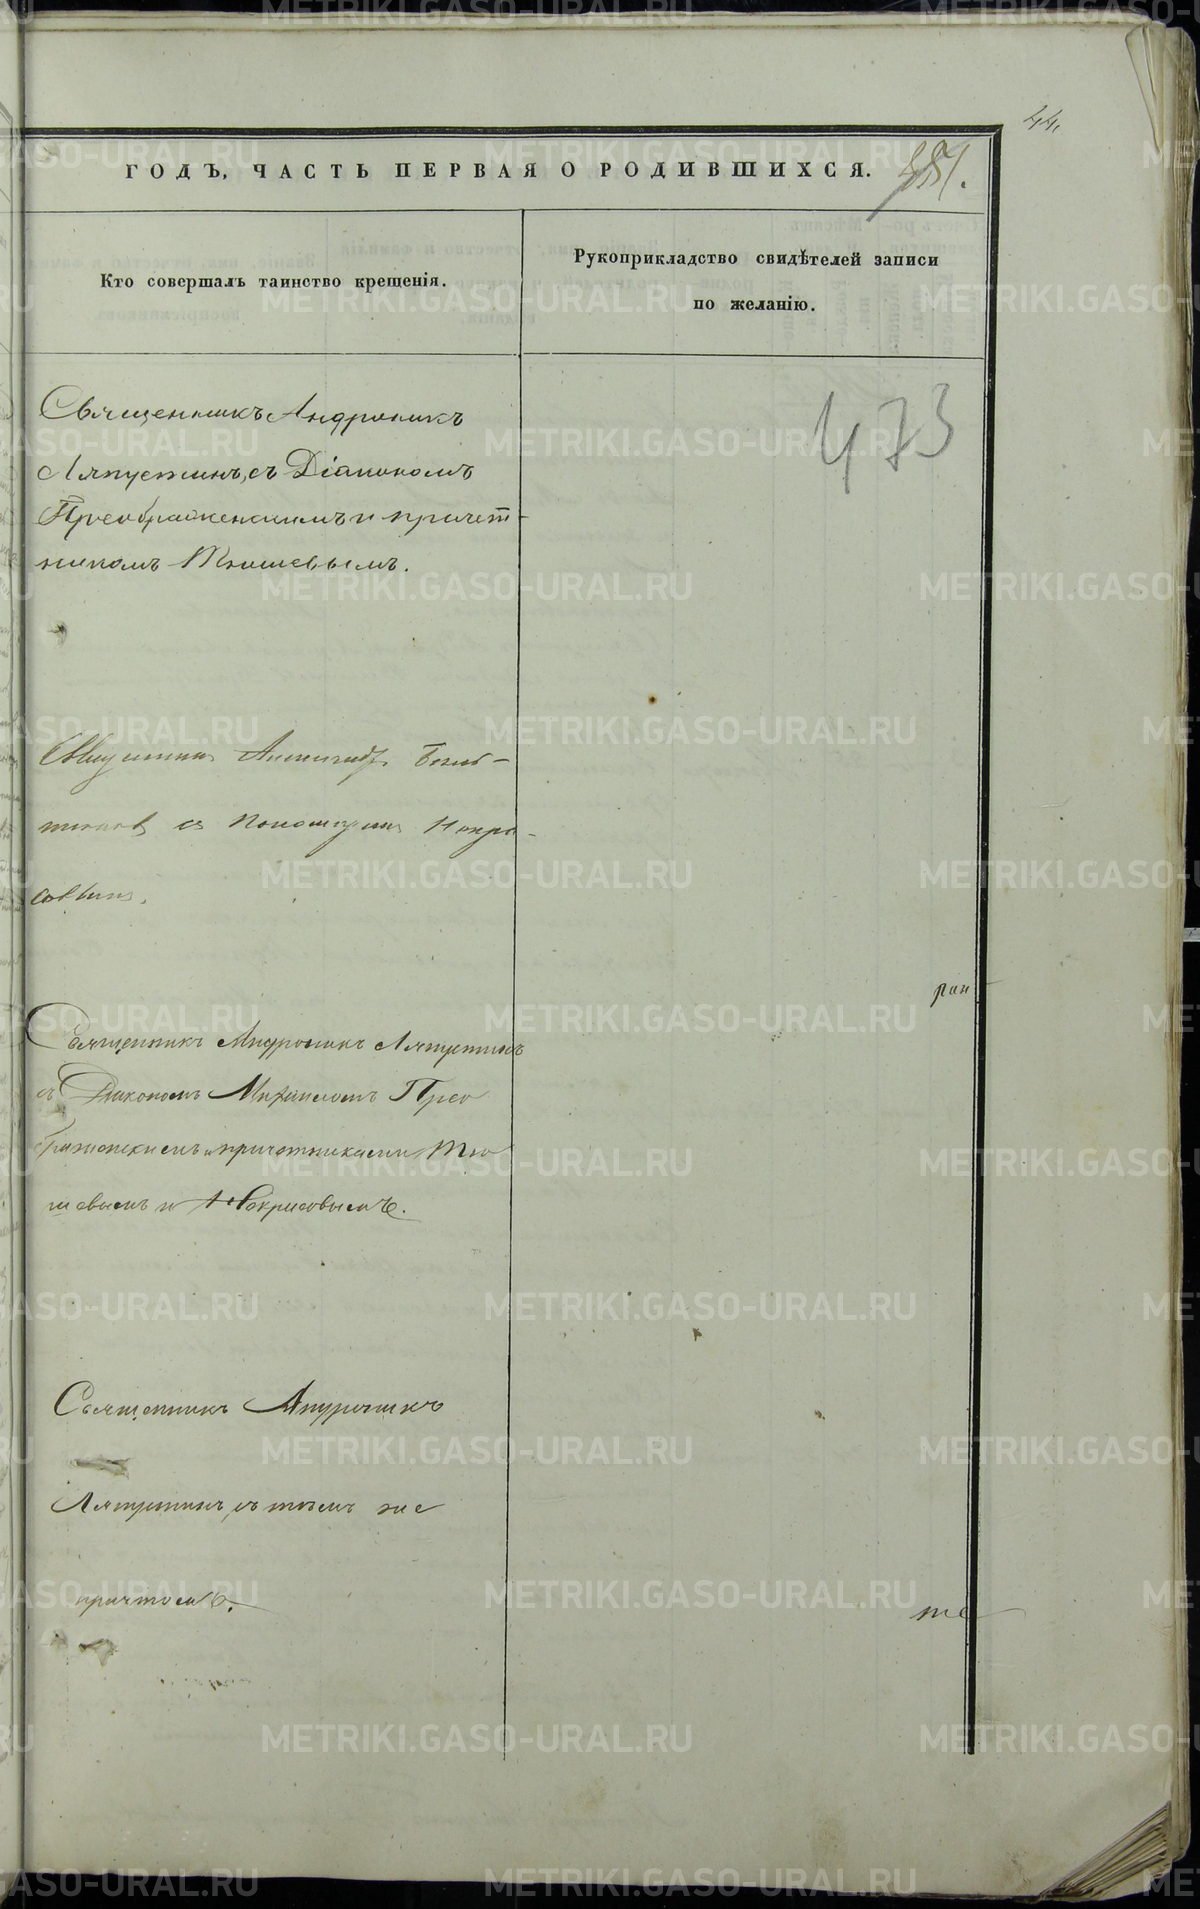 44.
ГОДЪ, ЧАСТЬ ПЕРВАЯ О РОДИВШИХСЯ.
Кто совершалъ таинство крещенія.
Рукоприкладство свидѣтелей записи
по желанію.
473
Священникъ Андроникъ
Ляпустинъ, съ Діакономъ
Преображенскимъ и причет-
никомъ Тюшевымъ.
Священникъ Александръ
съ Пономаремъ Некра-
совымъ.
ран
Священникъ Андроникъ Ляпустинъ
съ Діакономъ Михаиломъ Прео
браженскимъ и причетниками Тю
шевымъ и Некрасовымъ.
Священникъ Андроникъ
Ляпустинъ, съ тѣмъ же
причтомъ.
те
METRIKI.GASO-URAL.RU